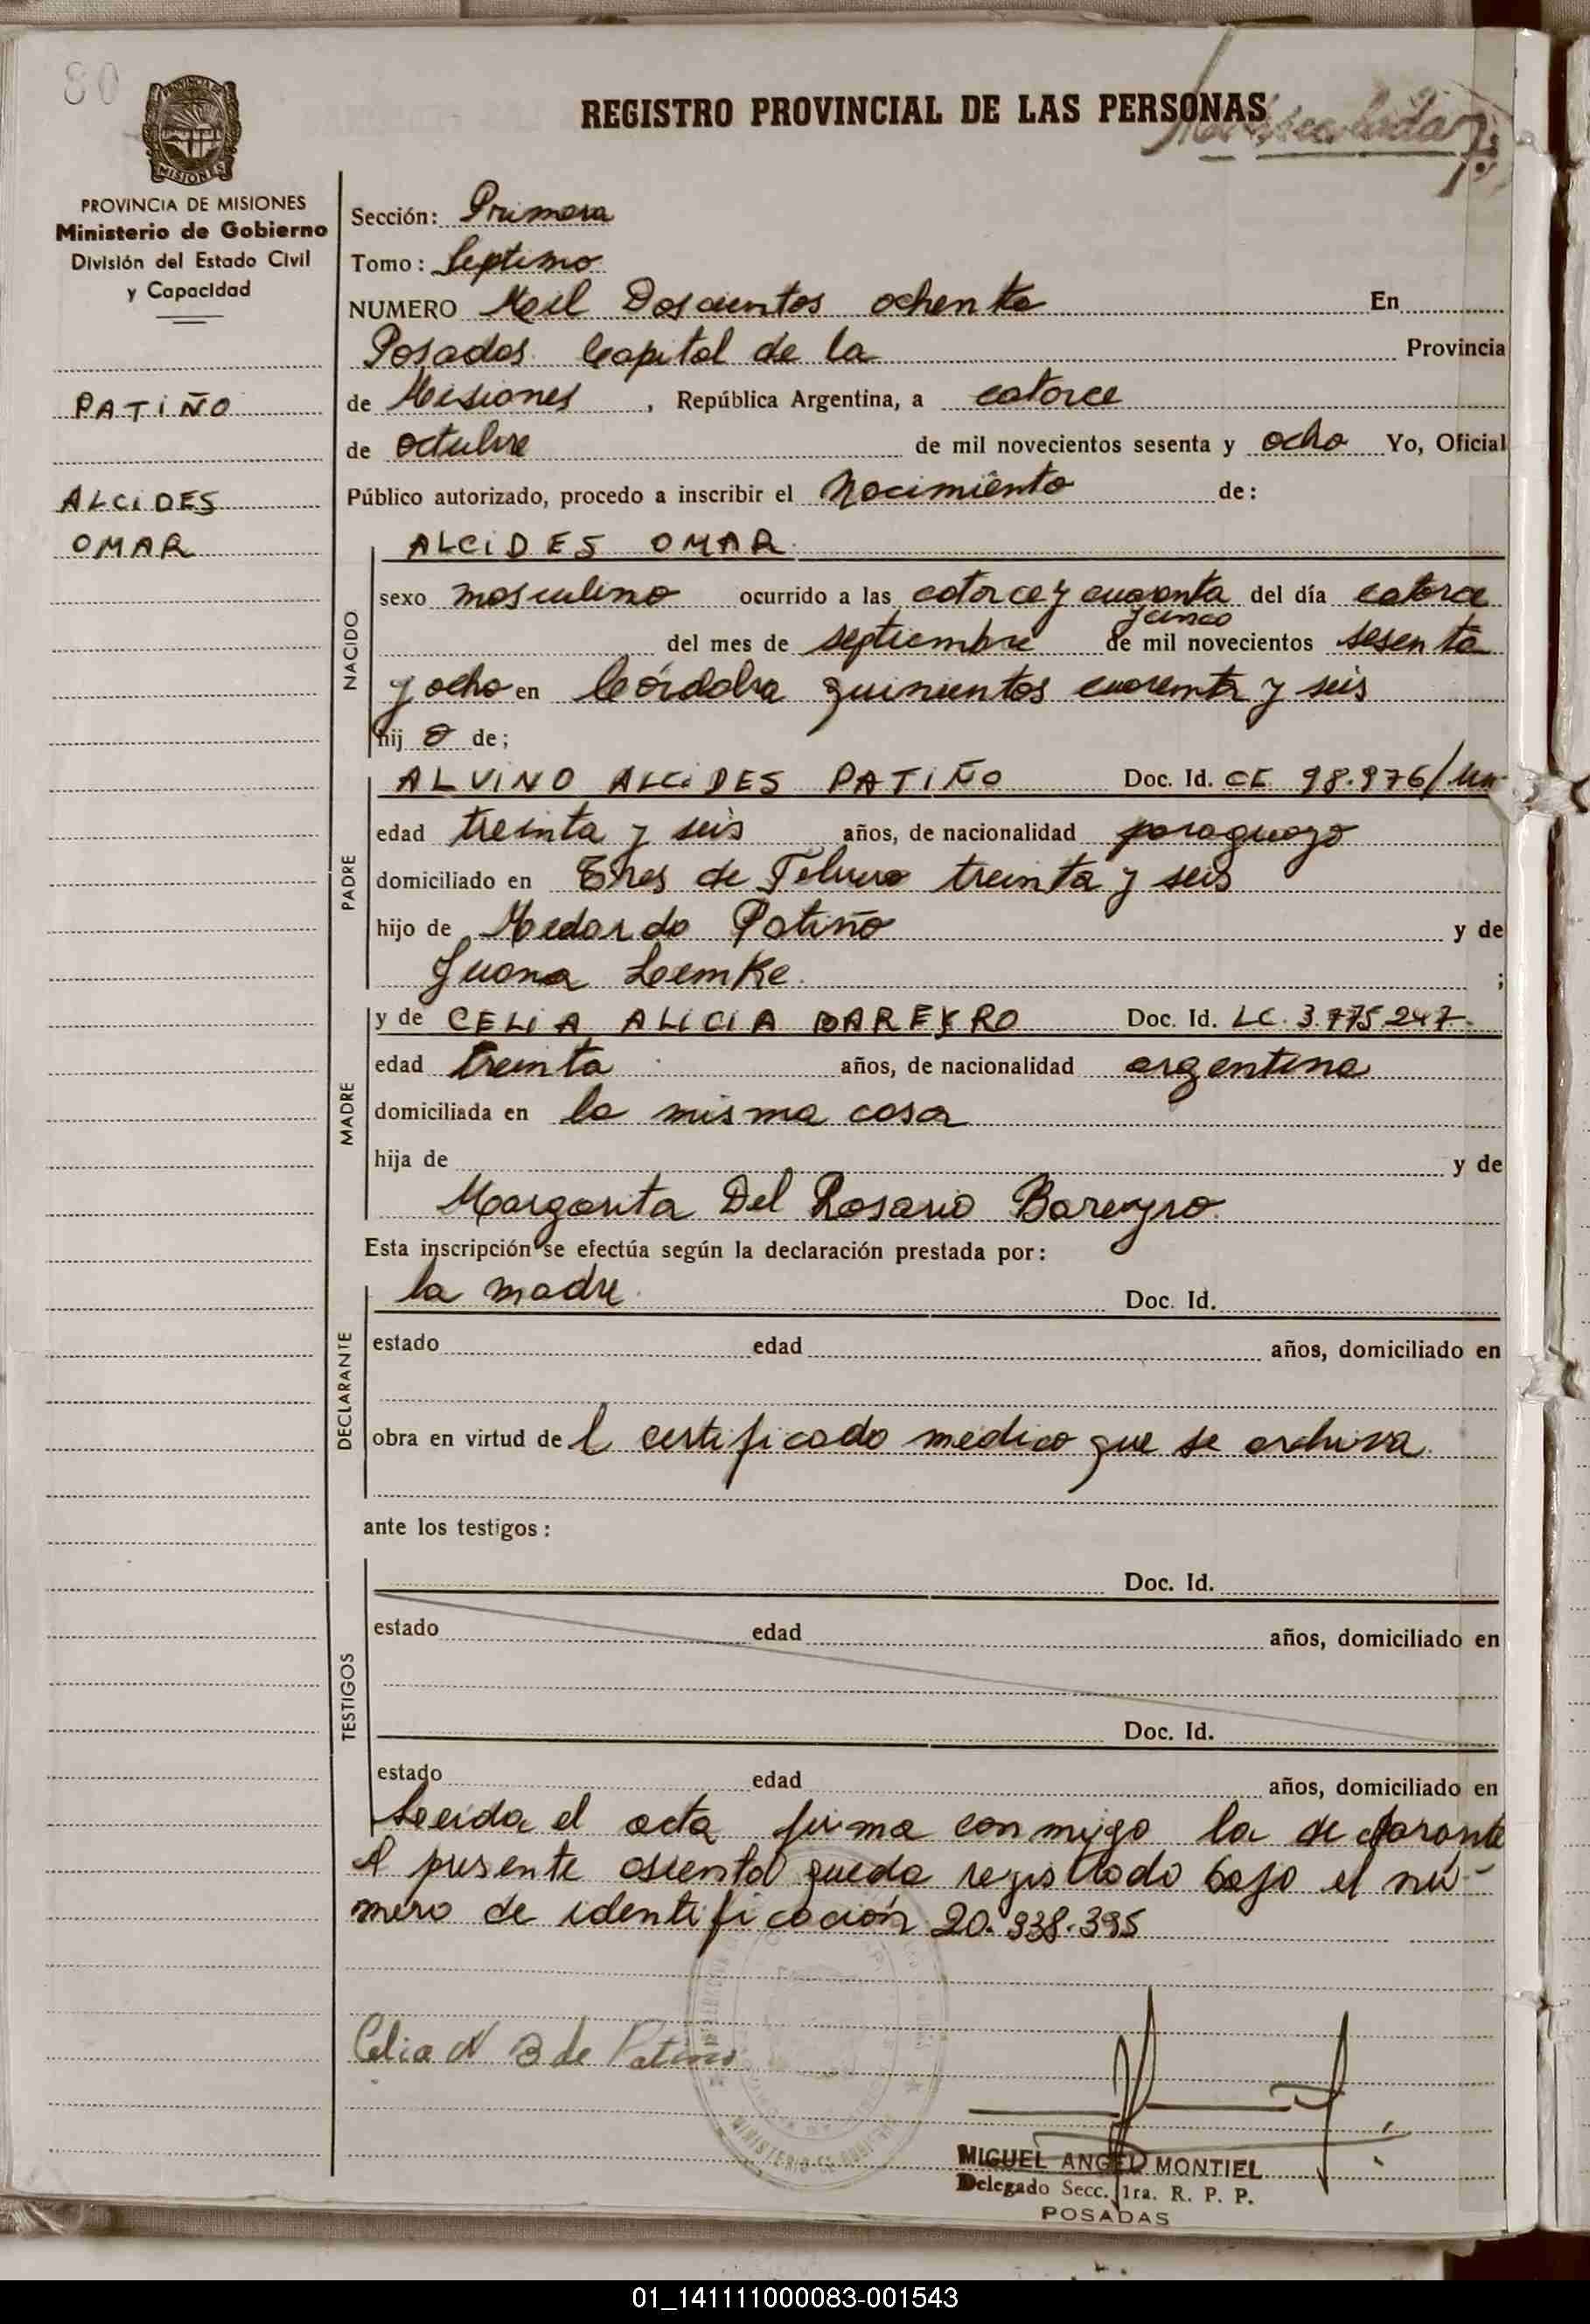 80
REGISTRO PROVINCIAL DE LAS PERSONAS
PROVINCIA DE MISIONES
Ministerio de Gobierno
División del Estado Civil
y Capacidad
PATIÑO
ALCIDES
OMAR
Sección: Primera
Tomo: Septimo
NUMERO Mil Doscientos ochenta En
Posadas Capital de la Provincia
de Misiones, República Argentina, a catorce
de octubre de mil novecientos sesenta y ocho Yo, Oficial
Público autorizado, procedo a inscribir el Nacimiento de:
NACIDO
ALCIDES OMAR
sexo masculino ocurrido a las catorce y cuarenta del día catorce
y cinco
del mes de septiembre de mil novecientos sesenta
y ocho en Córdoba quinientos cuarenta y seis
hijo de;
PADRE
ALVINO ALCIDES PATIÑO Doc. Id. CE 98.976/
edad treinta y seis años, de nacionalidad paraguayo
domiciliado en Tres de Febrero treinta y seis
hijo de Medardo Patiño y de
Juana Lemke ;
MADRE
y de CELIA ALICIA BAREYRO Doc. Id. LC. 3.775.247
edad treinta años, de nacionalidad argentina
domiciliada en la misma casa
hija de y de
Margarita Del Rosario Bareyro
Esta inscripción se efectúa según la declaración prestada por:
DECLARANTE
la madre Doc. Id.
estado edad años, domiciliado en
obra en virtud del certificado medico que se archiva
ante los testigos:
TESTIGOS
Doc. Id.
estado edad años, domiciliado en
Doc. Id.
estado edad años, domiciliado en
Leida el acta firma conmigo la declarante
El presente asiento queda registrado bajo el nú-
mero de identificación 20.938.395
Celia A B de Patiño
MIGUEL ANGEL MONTIEL
Delegado Secc. 1ra. R. P. P.
POSADAS
01_141111000083-001543